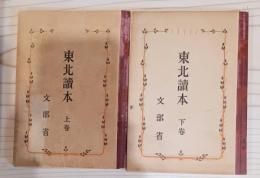 東北讀本
上卷
文部省
東北讀本
下卷
文部省